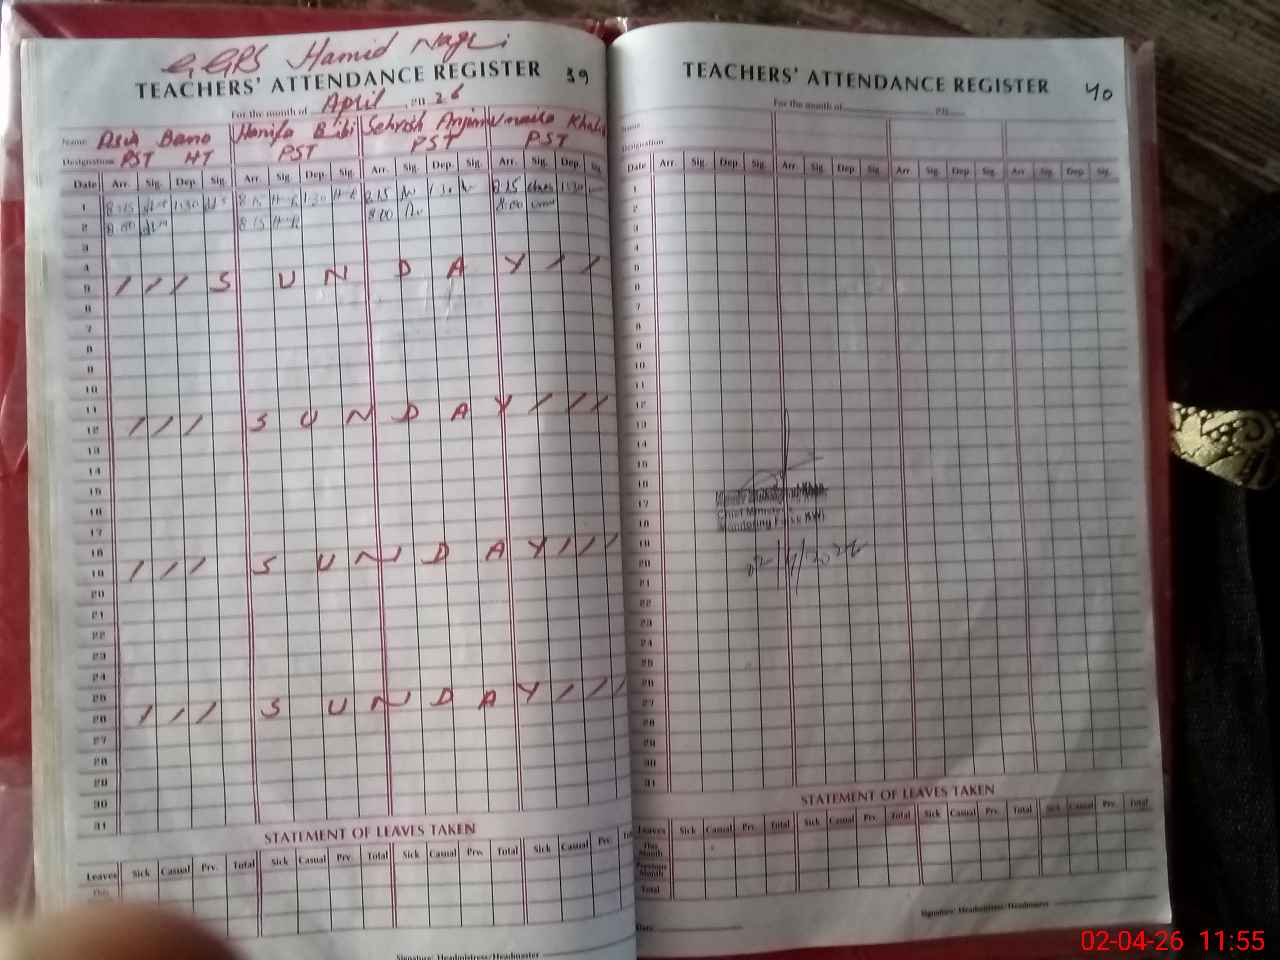 GGPS Hamid Naqi
TEACHERS' ATTENDANCE REGISTER 39
For the month of April 2026
Name Asia Bano Hanifa Bibi Sehrish Anjum Umaila Khalid
Designation PST HT PST PST PST
Date Arr. Sig. Dep. Sig. Arr. Sig. Dep. Sig. Arr. Sig. Dep. Sig. Arr. Sig. Dep. Sig.
1 8:15 1:30 8:15 H-B 1:30 H-B 8:15 1:30 8:15 1:30
2 8:00 8:15 H-B 8:00 8:00
3
4
5 / / / S U N D A Y / /
6
7
8
9
10
11
12 / / / S U N D A Y / / /
13
14
15
16
17
18
19 / / / S U N D A Y / / /
20
21
22
23
24
25
26 / / / S U N D A Y / / /
27
28
29
30
31
STATEMENT OF LEAVES TAKEN
Leaves Sick Casual Prv. Total Sick Casual Prv. Total Sick Casual Prv. Total Sick Casual Prv.
This
Signature: Headmistress/Headmaster
TEACHERS' ATTENDANCE REGISTER 40
For the month of 20
Name
Designation
Date Arr. Sig. Dep. Sig. Arr. Sig. Dep. Sig. Arr. Sig. Dep. Sig. Arr. Sig. Dep. Sig.
1
2
3
4
5
6
7
8
9
10
11
12
13
14
15
16
17
18
19
20
21
22
23
24
25
26
27
28
29
30
31
Chief Minister's
Monitoring Force (KW)
02/4/2026
STATEMENT OF LEAVES TAKEN
Leaves Sick Casual Prv. Total Sick Casual Prv. Total Sick Casual Prv. Total Sick Casual Prv. Total
This Month
Previous Month
Total
Signature: Headmistress/Headmaster
Date
02-04-26 11:55